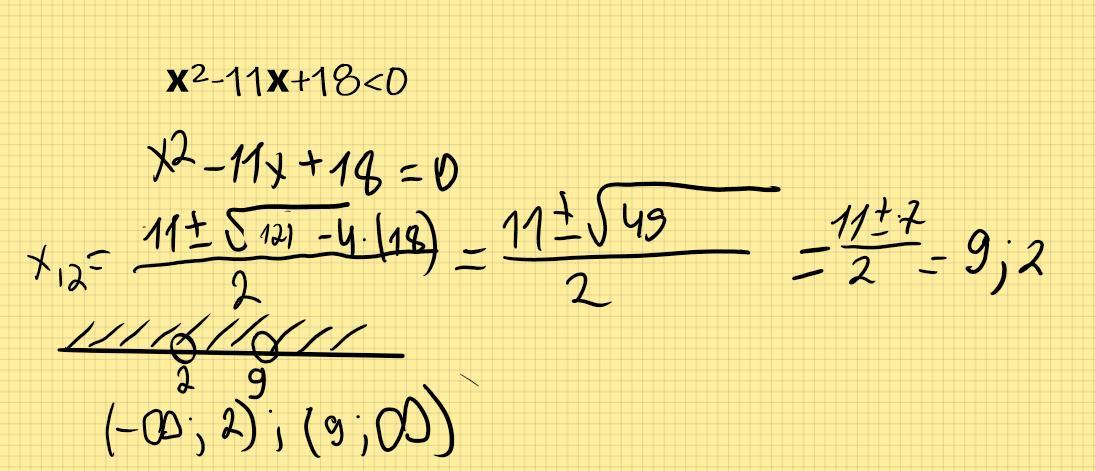 x²-11x+18<0
x² - 11x + 18 = 0
x₁₂ = (11 ± √121 - 4·(18))/2 = (11 ± √49)/2 = (11 ± 7)/2 = 9 ; 2
2 9
(-∞ ; 2) ; (9 ; ∞)